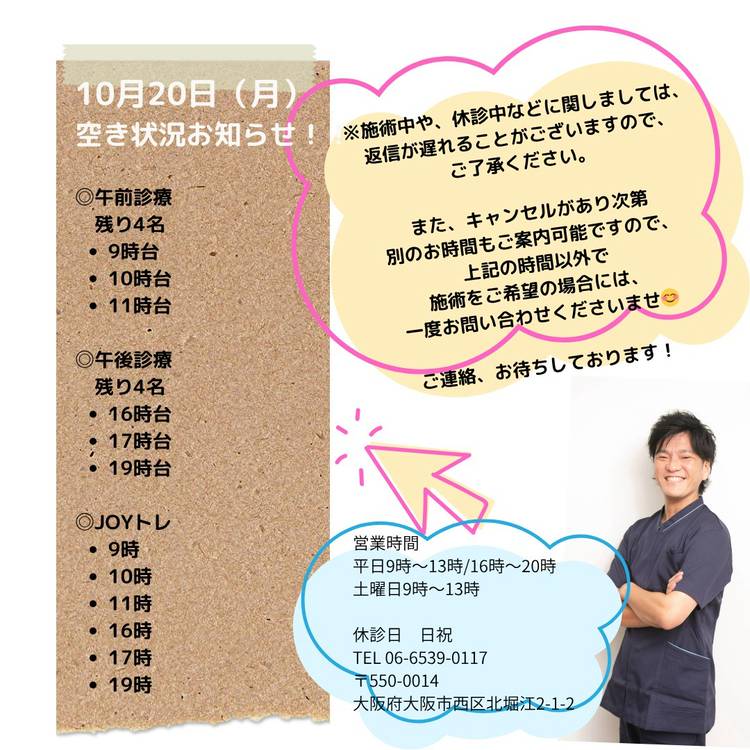 10月20日（月）
空き状況お知らせ！
◎午前診療
残り4名
• 9時台
• 10時台
• 11時台
◎午後診療
残り4名
• 16時台
• 17時台
• 19時台
◎JOYトレ
• 9時
• 10時
• 11時
• 16時
• 17時
• 19時
※施術中や、休診中などに関しましては、
返信が遅れることがございますので、
ご了承ください。
また、キャンセルがあり次第
別のお時間もご案内可能ですので、
上記の時間以外で
施術をご希望の場合には、
一度お問い合わせくださいませ😊
ご連絡、お待ちしております！
営業時間
平日9時〜13時/16時〜20時
土曜日9時〜13時
休診日　日祝
TEL 06-6539-0117
〒550-0014
大阪府大阪市西区北堀江2-1-2